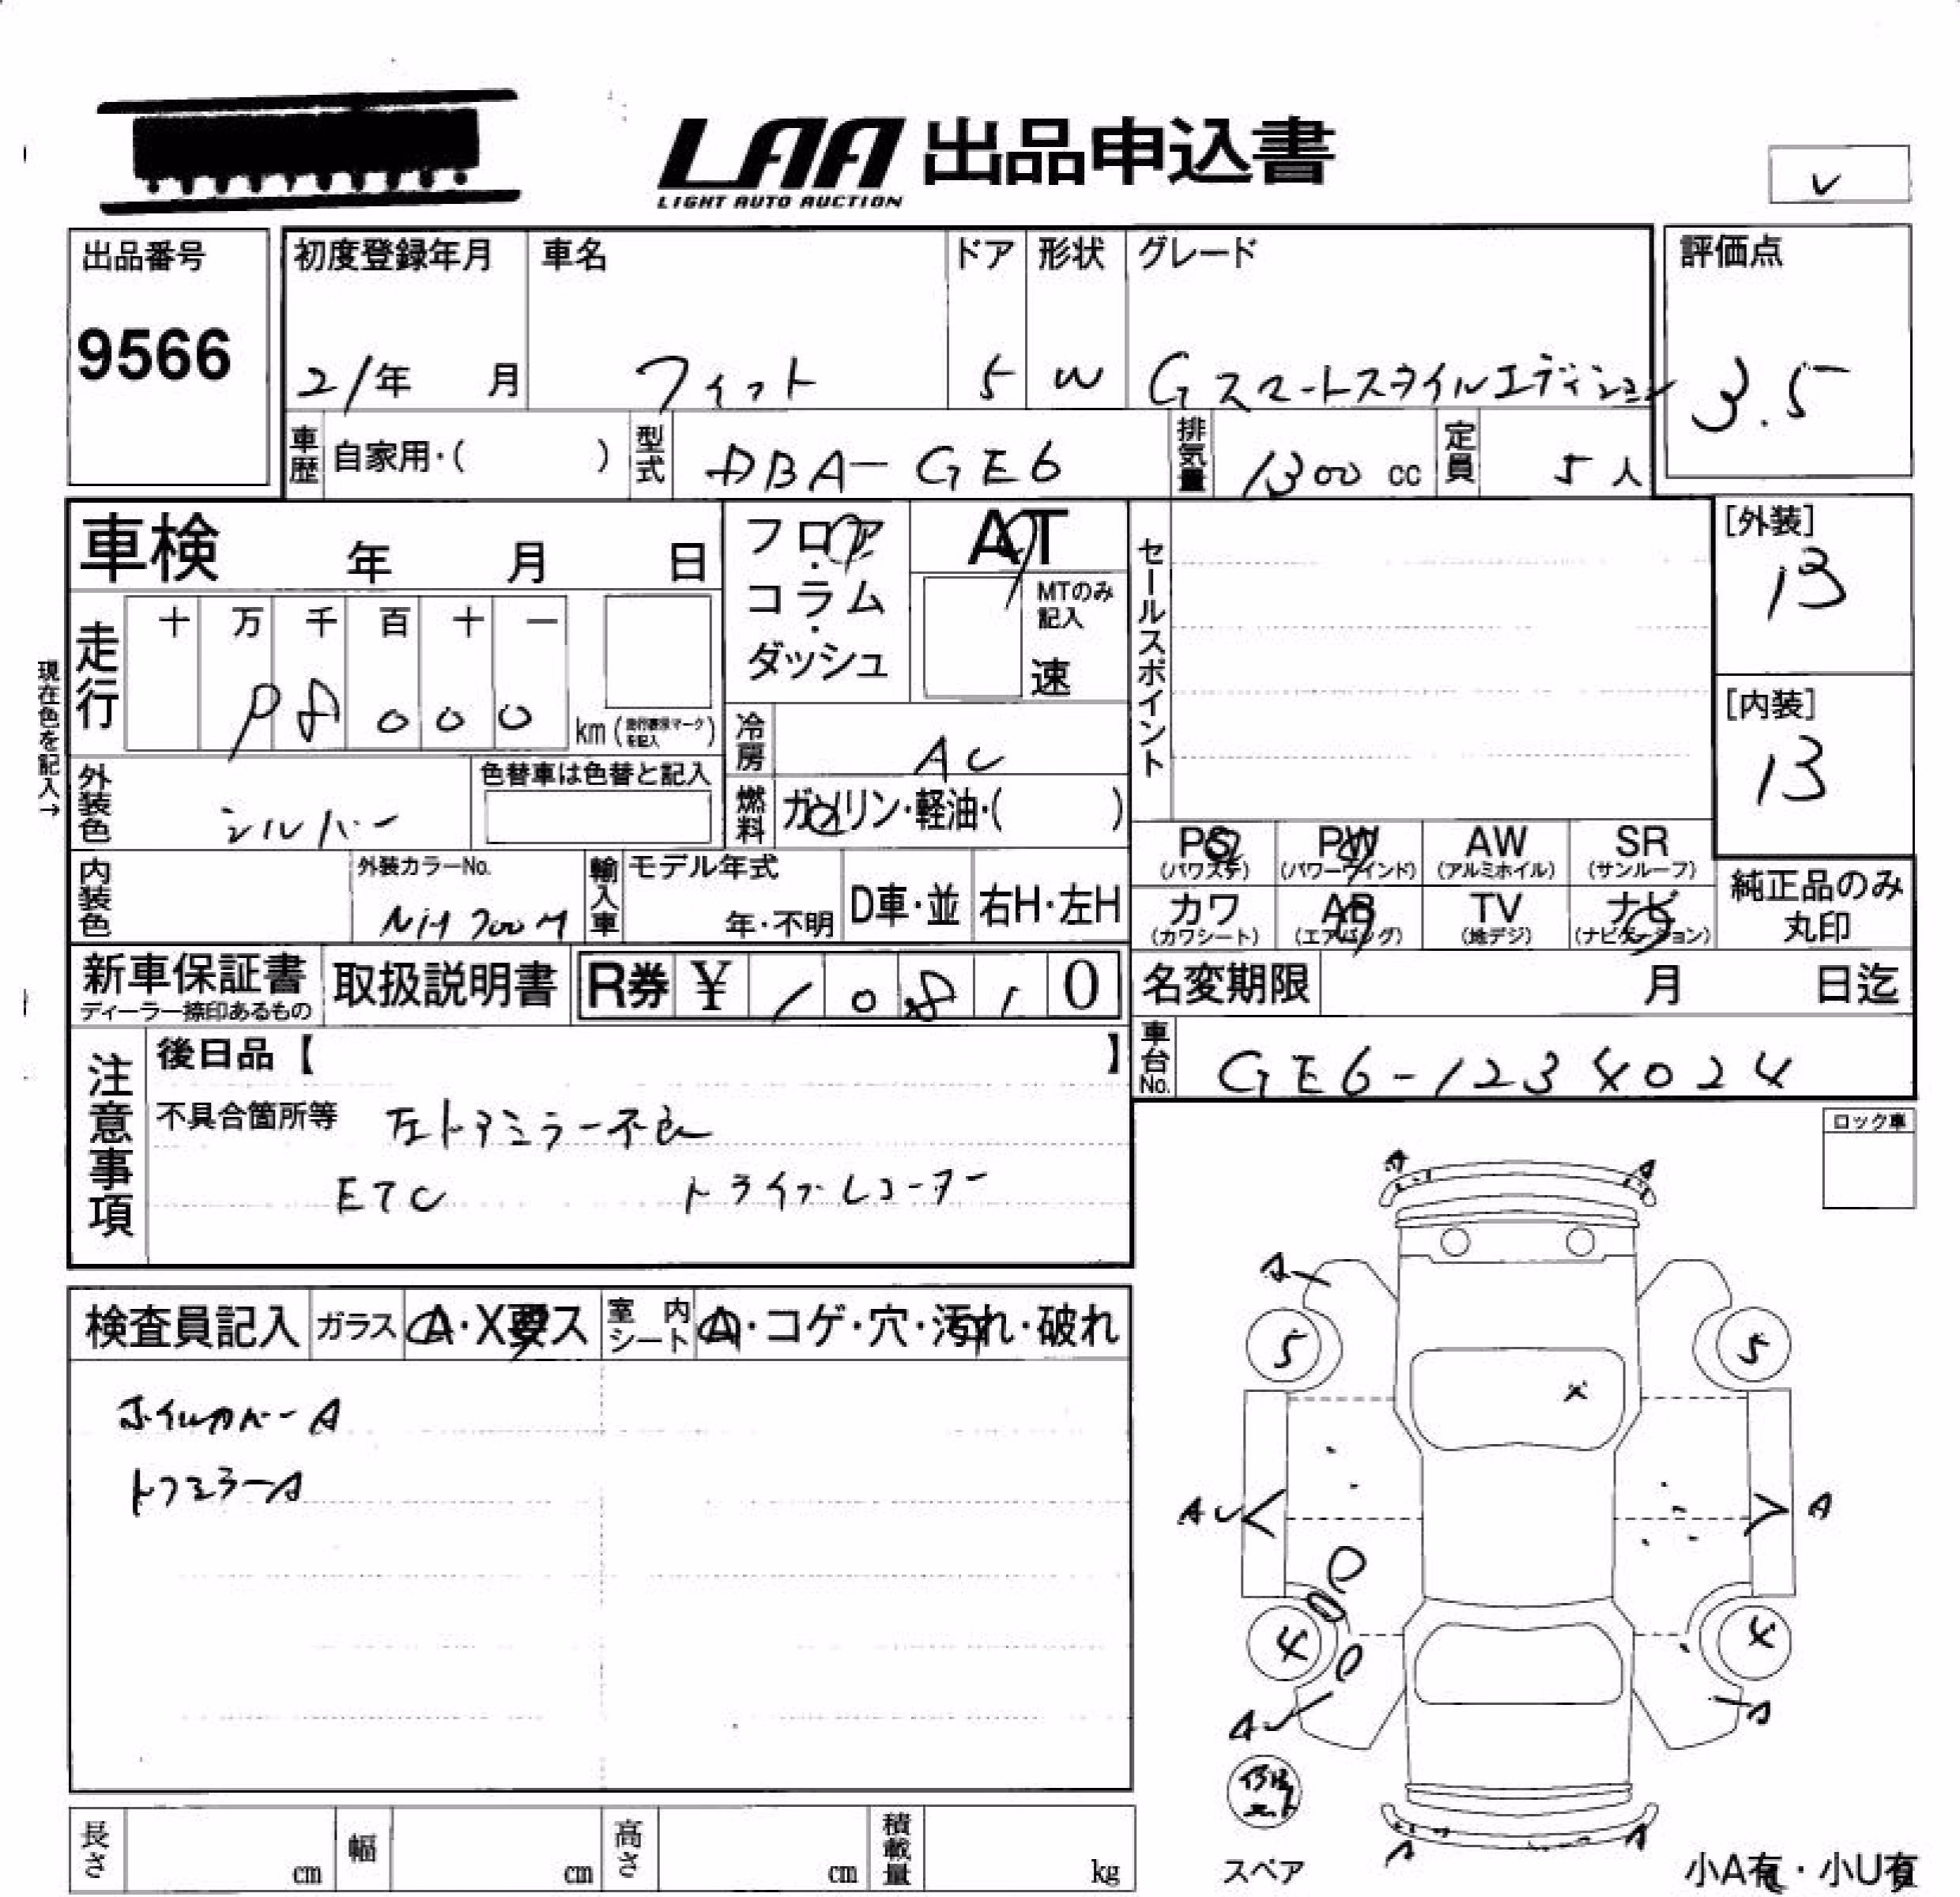 LAA 出品申込書
LIGHT AUTO AUCTION
出品番号
9566
初度登録年月
21年 月
車名
フィット
ドア
5
形状
W
グレード
Gスマートスタイルエディション
評価点
3.5
車歴 自家用・( )
型式 DBA-GE6
排気量 1300 cc
定員 5人
車検 年 月 日
フロア・コラム・ダッシュ
AT
MTのみ記入
速
セールスポイント
[外装]
13
[内装]
13
現在色を記入→
走行
十 万 千 百 十 一
8 0 0 0
km(走行表示マークを記入)
冷房 AC
外装色 シルバー
色替車は色替と記入
燃料 ガソリン・軽油・( )
PS (パワステ)
PW (パワーウインド)
AW (アルミホイル)
SR (サンルーフ)
内装色
外装カラーNo.
NH700M
輸入車
モデル年式
年・不明
D車・並
右H・左H
カワ (カワシート)
AB (エアバッグ)
TV (地デジ)
ナビ (ナビゲーション)
純正品のみ丸印
新車保証書
ディーラー捺印あるもの
取扱説明書
R券 ¥ 1 0 8 1 0
名変期限 月 日迄
車台No. GE6-1234024
注意事項
後日品【 】
不具合箇所等 左ドアミラー不良
ETC ドライブレコーダー
ロック車
検査員記入
ガラス A・X要ス
室内シート A・コゲ・穴・汚れ・破れ
ホイルカバーA
ドアミラーA
A A
A
5 5
X
AU A
4 4
AU A
スペア
A A
小A有・小U有
長さ cm
幅 cm
高さ cm
積載量 kg